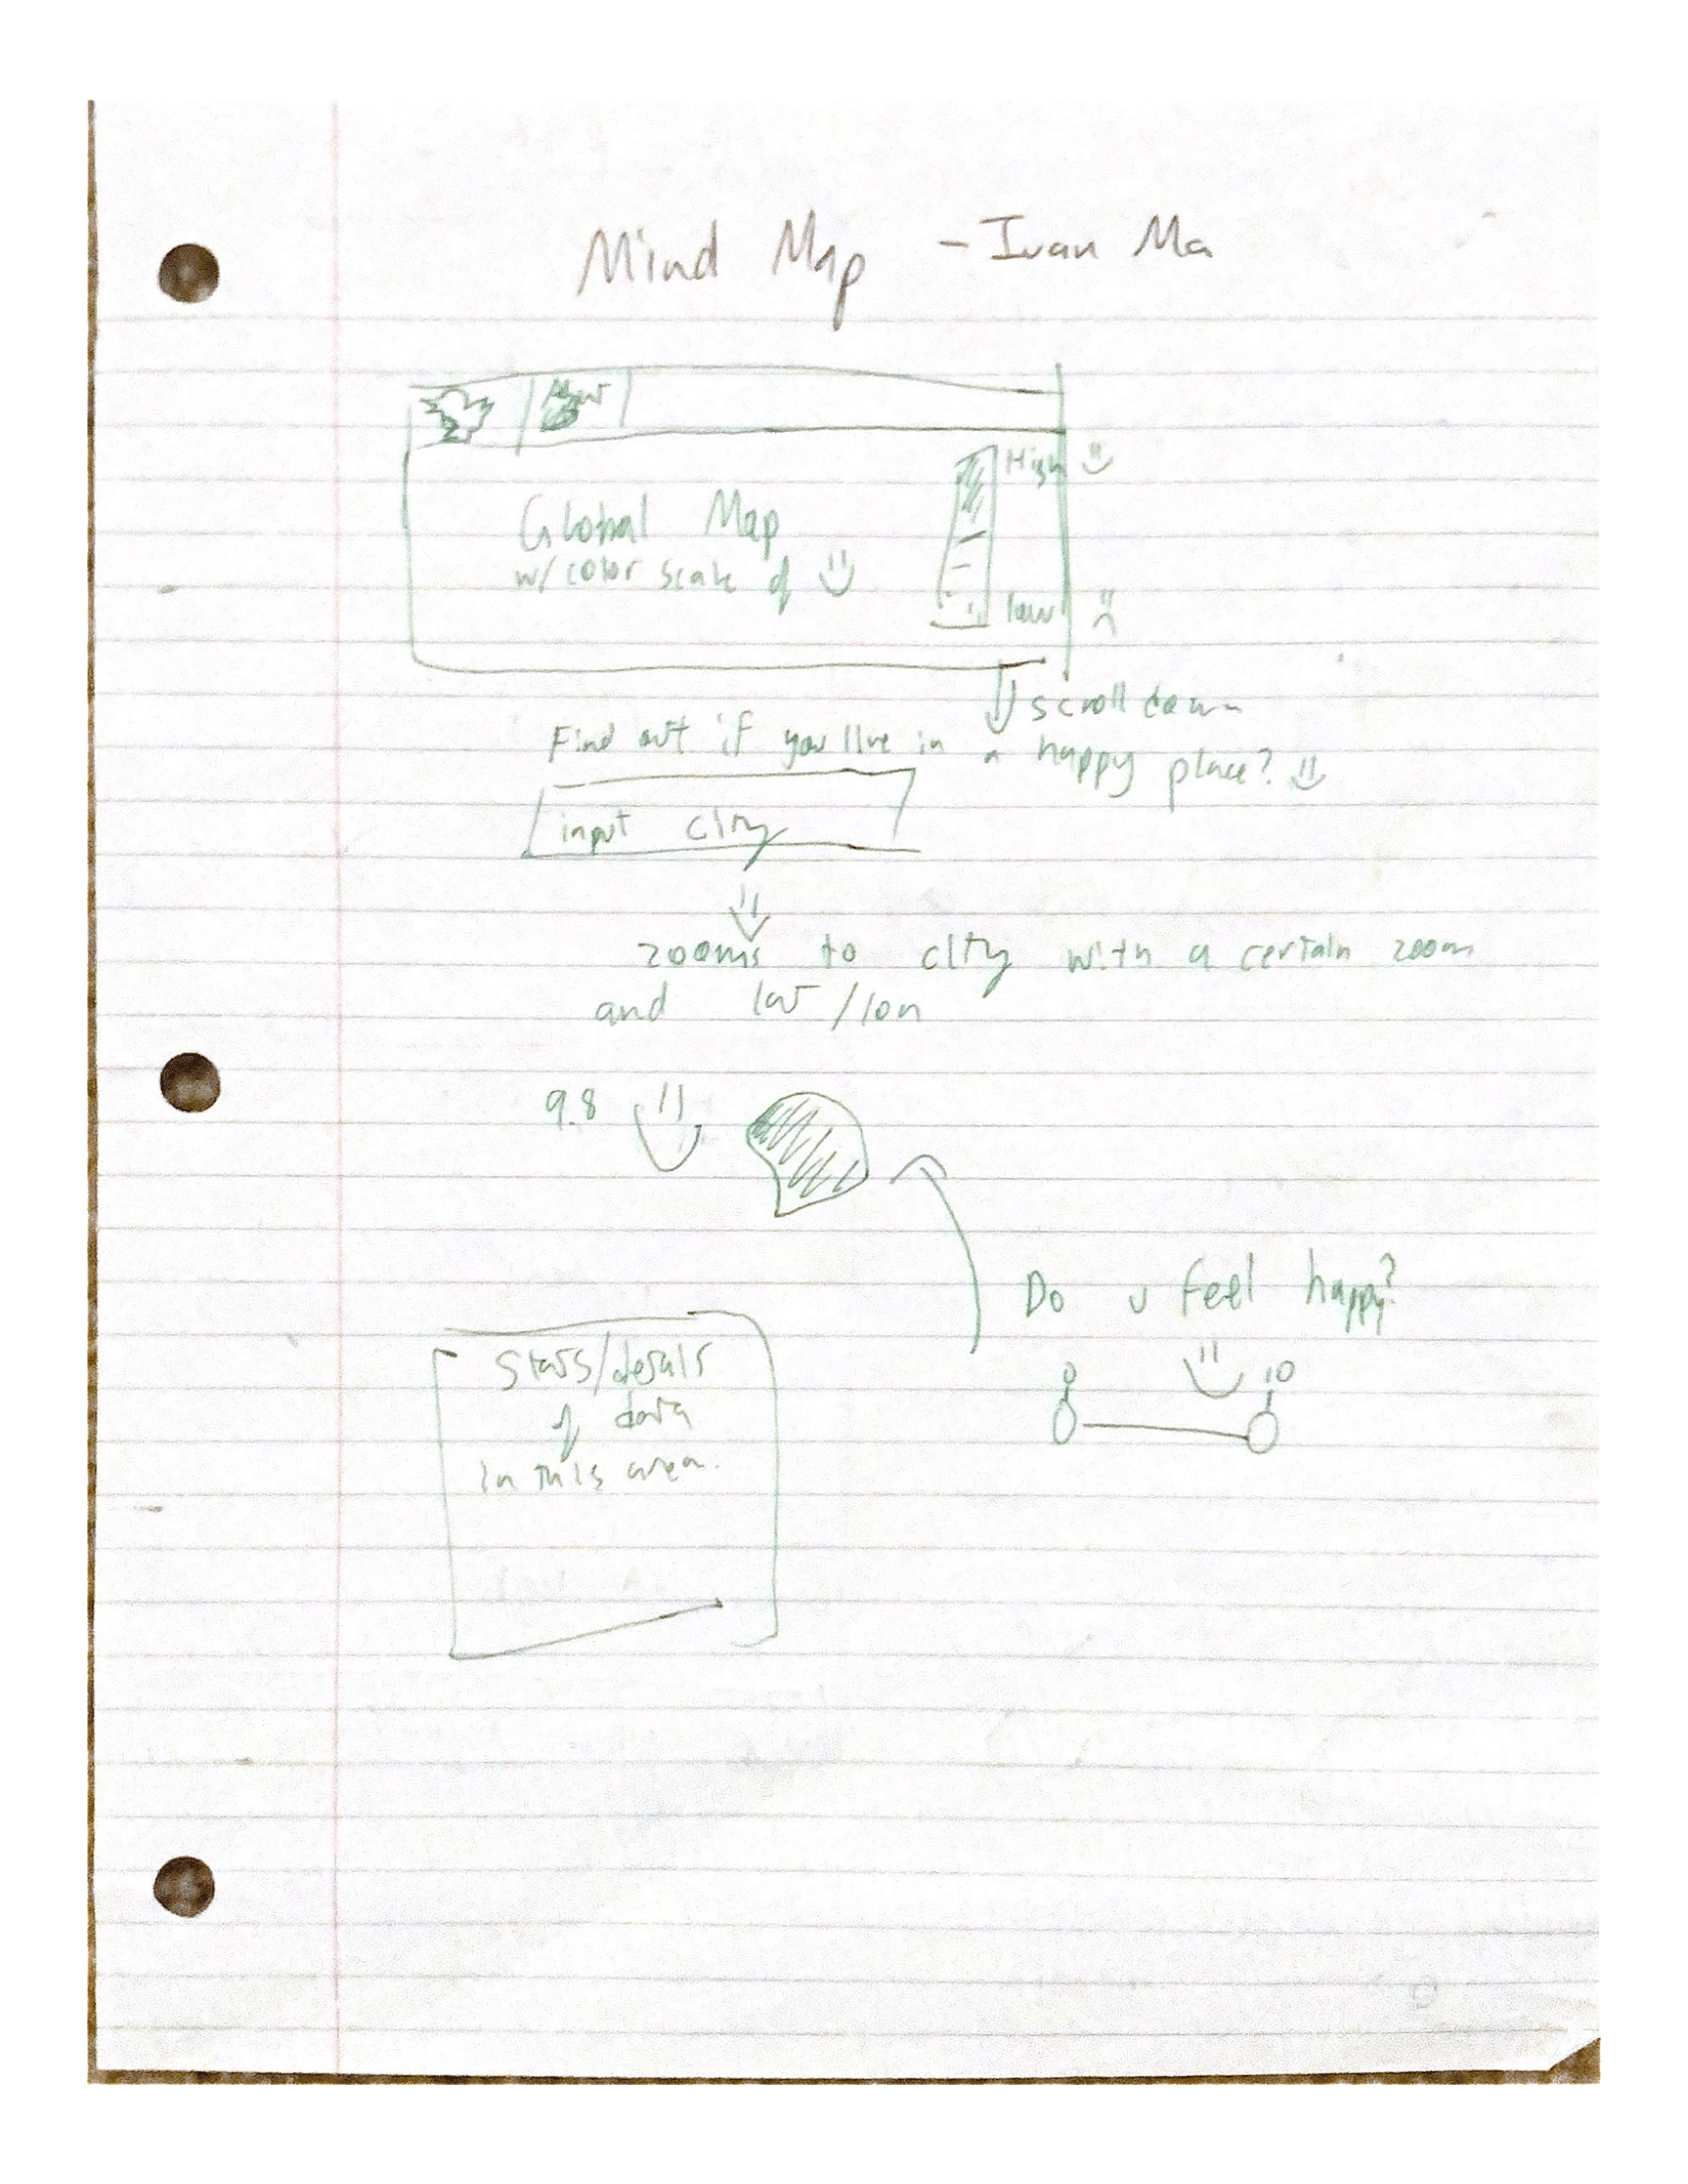 Mind Map - Ivan Ma
High
Global Map
w/ color scale of
low
scroll down
Find out if you live in a happy place?
input city
zooms to city with a certain zoom
and lat/lon
9.8
Do u feel happy?
0 10
Stats/details
of data
in this area.